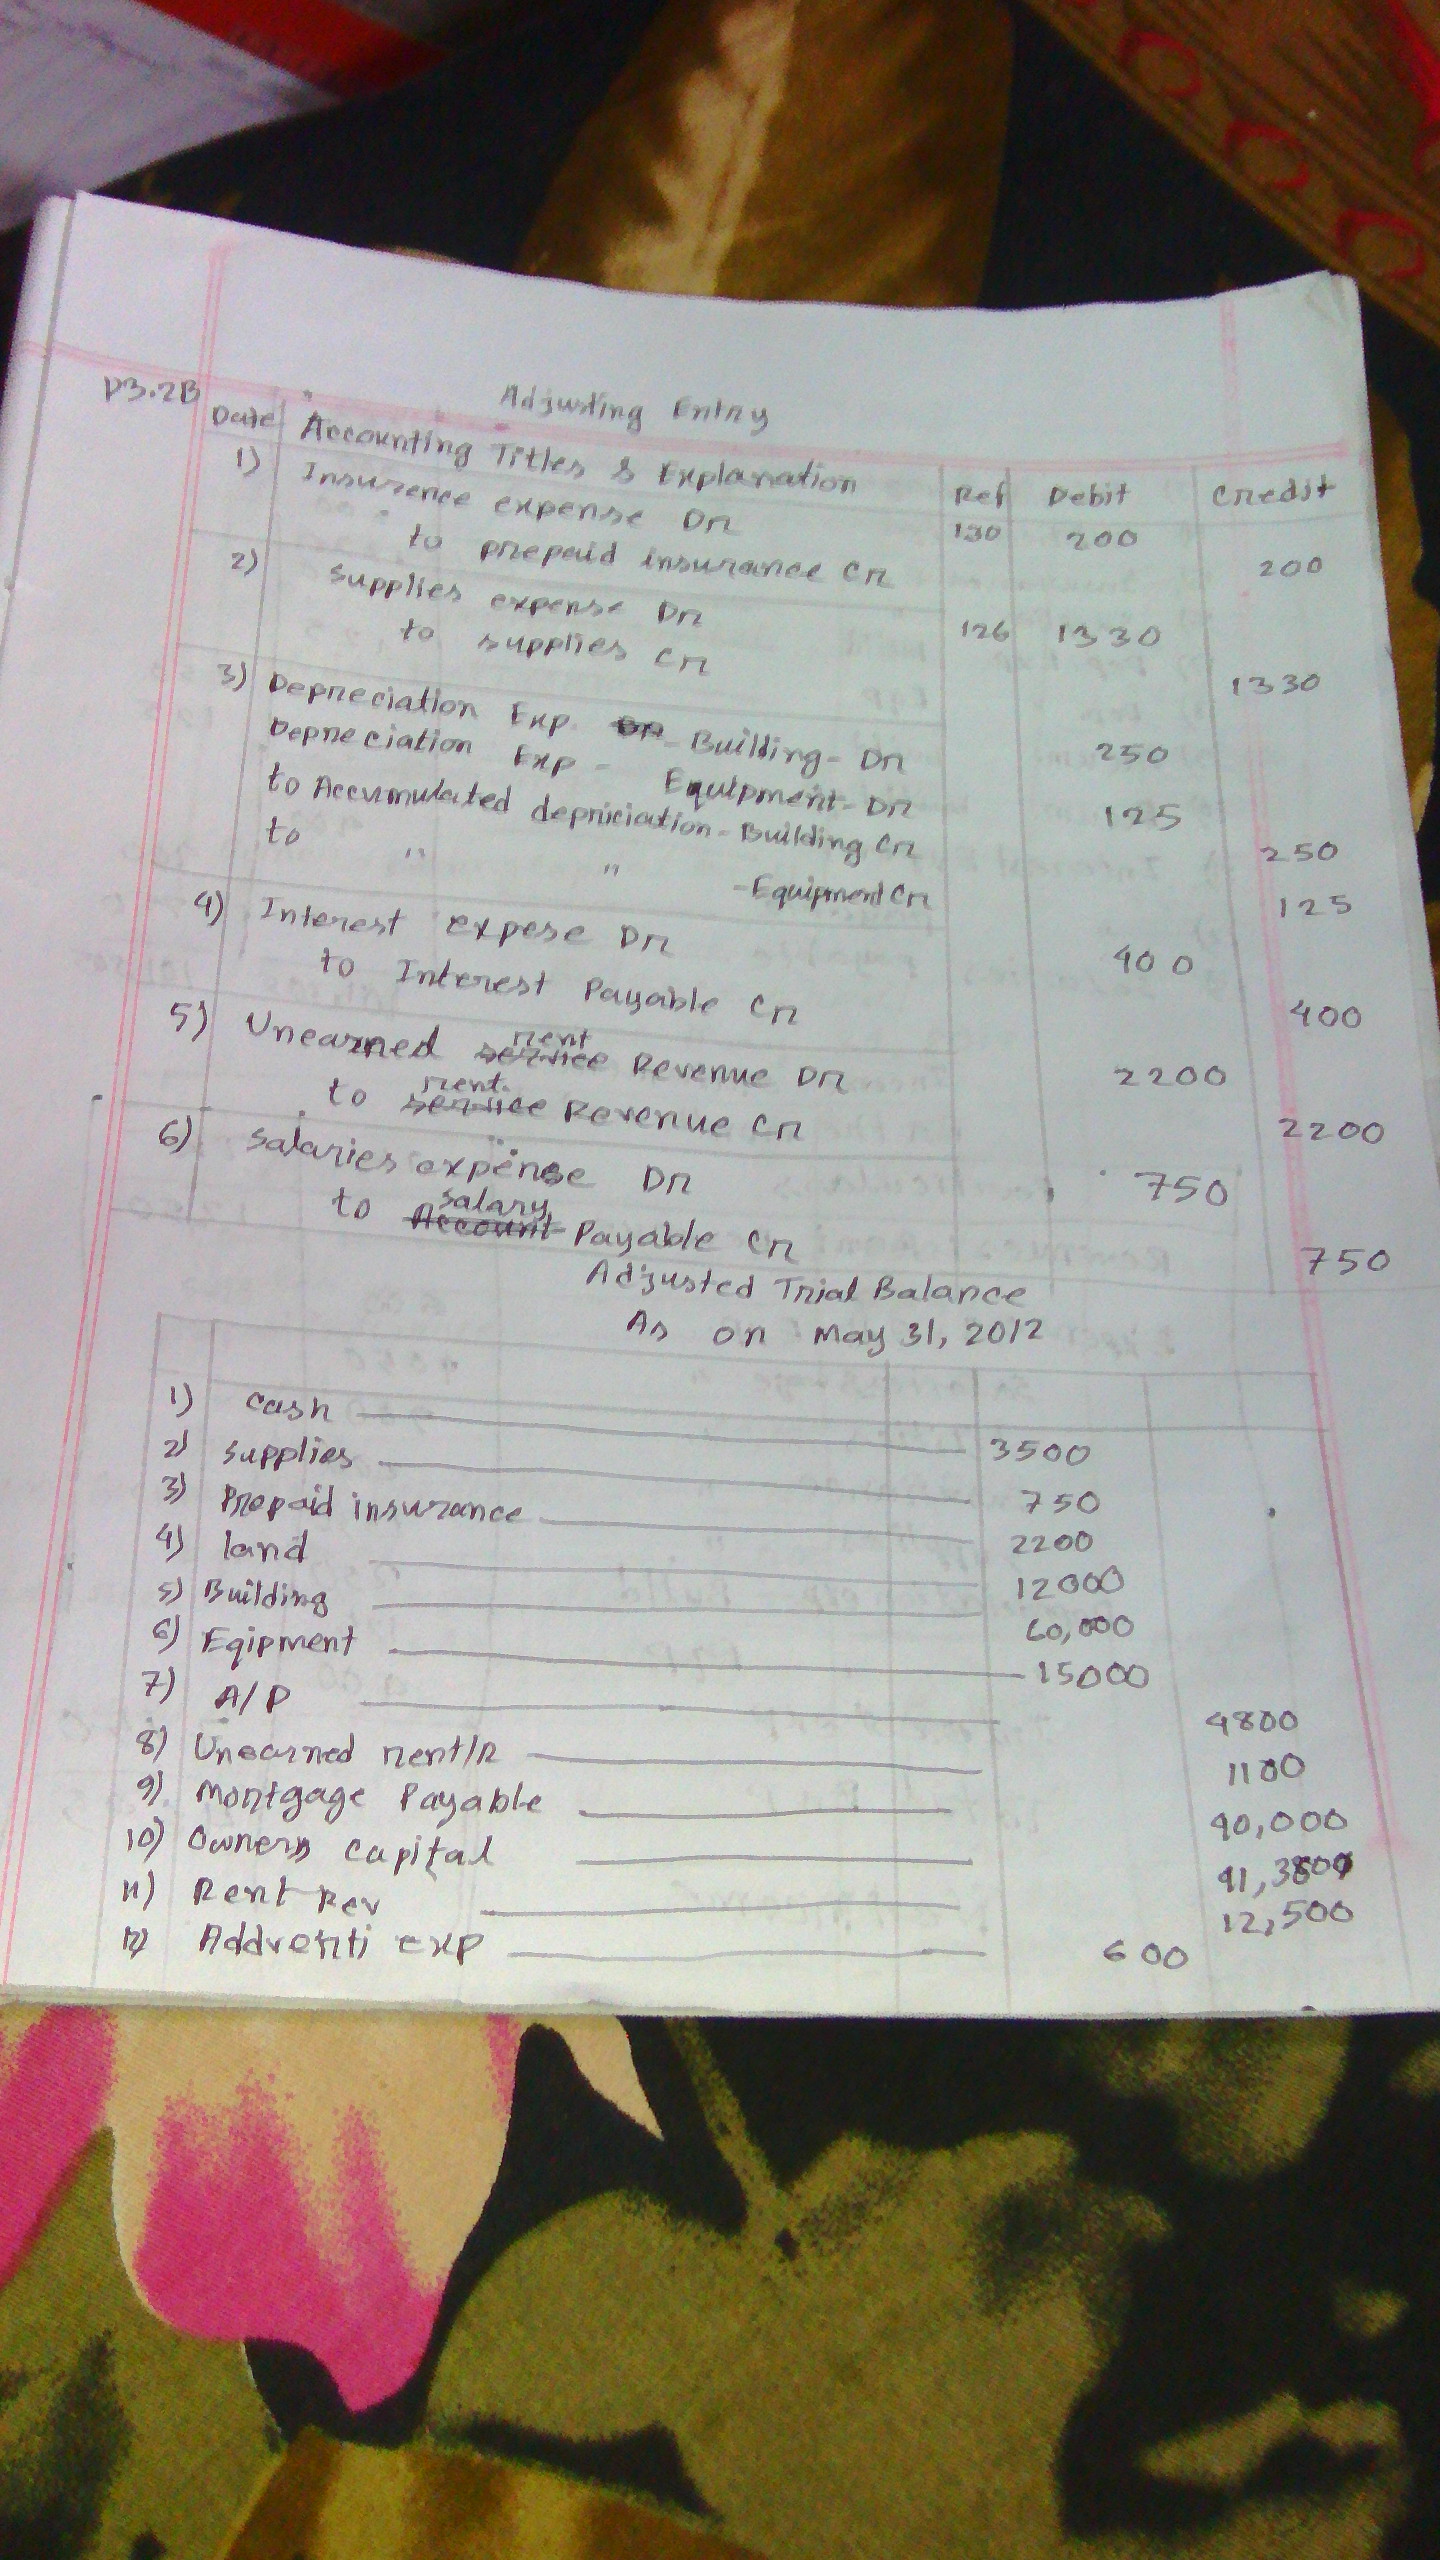 P3.2B Adjusting Entry
Date Accounting Titles & Explanation Ref Debit Credit
1) Insurence expense Dr 130 200
to prepaid insurance Cr 200
2) Supplies expense Dr 126 1330
to supplies Cr 1330
3) Depreciation Exp. Dr - Building - Dr 250
Depreciation Exp - Equipment - Dr 125
to Accumulated depriciation - Building Cr 250
to " " - Equipment Cr 125
4) Interest expese Dr 400
to Interest Payable Cr 400
5) Unearned service rent Revenue Dr 2200
to service rent. Revenue Cr 2200
6) Salaries expense Dr 750
to Account salary Payable Cr 750
Adjusted Trial Balance
As on May 31, 2012
1) Cash 3500
2) Supplies 750
3) Prepaid insurance 2200
4) land 12000
5) Building 60,000
6) Eqipment 15000
7) A/P 4800
8) Unearned rent/R 1100
9) Mortgage Payable 40,000
10) Owners capital 41,380
11) Rent Rev 12,500
12) exp 600